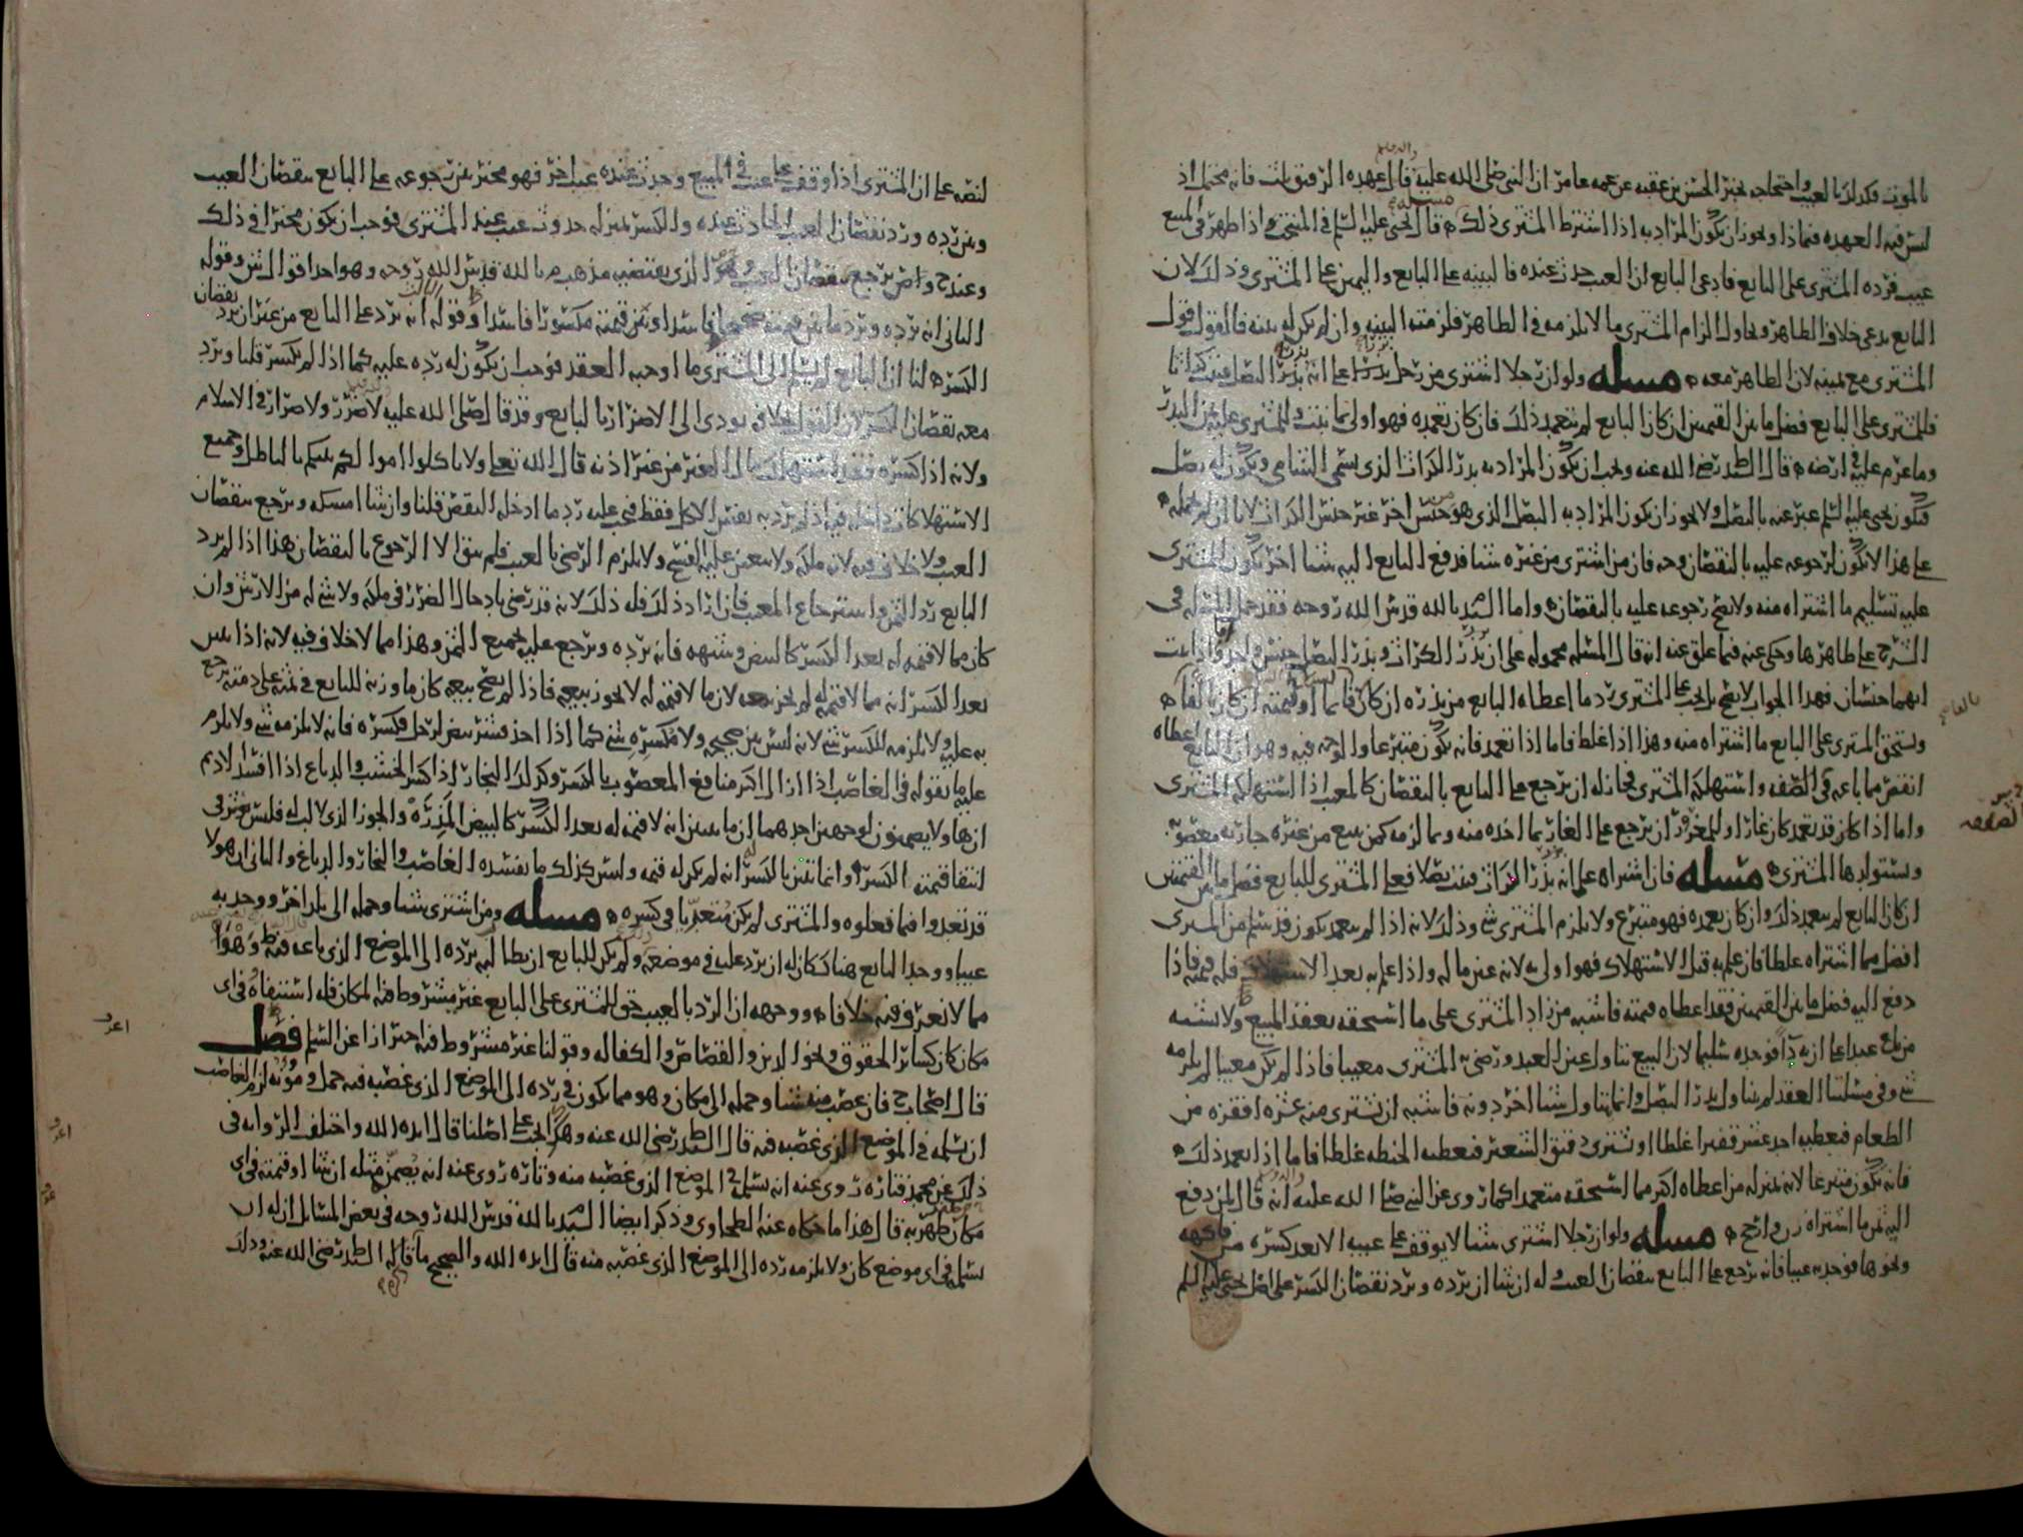 بالموت فكذلك بالعيب واحتجاجه بخبر الحسن بن عقبه عن عمه عامر ان النبي صلى الله عليه قال عهده الرقيق ثلث فانه محتمل اذ
ليس فيه العهده فيماذا ويجوز ان يكون المراد به اذا اشترط المشترى ذلك قال يحيى عليه السلم في المنتخب واذا ظهر في المبيع
عيب فرده المشترى على البايع فادعى البايع ان العيب حدث عنده فالبينه على البايع واليمين على المشترى وذلك لان
البايع يدعى خلاف الظاهر ويحاول الزام المشترى ما لا يلزمه في الظاهر فلزمته البينه وان لم يكن له بينه فالقول قول
المشترى مع يمينه لان الظاهر معه مسله ولو ان رجلا اشترى من رجل بذرا على انه بذر البصل فنبت كراثا
فللمشترى على البايع فضل ما بين القيمتين ان كان البايع لم يتعمد ذلك فان كان تعمده فهو اولى بما نبت وللمشترى عليه ثمن البذر
وما غرم عليه في ارضه قال السيد رضى الله عنه ويجب ان يكون المراد به بذر الكراث الذى يسمى الشامي ويكون له بصل
فيكون يحيى عليه السلم عبر عنه بالبصل ولا يجوز ان يكون المراد به البصل الذى هو جنس اخر غير جنس الكراث لانا ان لم نحمله
على هذا لا يكون لرجوعه عليه بالنقصان وجه فان من اشترى من غيره شيا فدفع البايع اليه شيا اخر يكون للمشترى
عليه تسليم ما اشتراه منه ولا يصح رجوعه عليه بالنقصان واما السيد بالله قدس الله روحه فقد حمل المسله في
الشرح على ظاهرها وحكى عنه فيما علق عنه انه قال المسله محموله على ان بذر الكراث وبذر البصل جنس واحد
انهما جنسان فهذا الجواب لا يصح بل يجب على المشترى رد ما اعطاه البايع من بذره ان كان قايما او قيمته ان كان تالفا
ويستحق المشترى على البايع ما اشتراه منه وهذا اذا غلط فاما اذا تعمد فانه يكون متبرعا والوجه فيه وهو ان البايع اعطاه
انقص مما باعه في الصفه واستهلكه المشترى فجاز له ان يرجع على البايع بالنقصان كالمعيب اذا استهلكه المشترى
واما اذا كان قد تعمد كان غارا وللمغرور ان يرجع على الغار بما اخذه منه وبما لزمه كمن يبيع من غيره جاريه مغصوبه
ويستولدها المشترى مسله فان اشتراه على انه بذر الكراث فنبت بصلا فعلى المشترى للبايع فضل ما بين القيمتين
ان كان البايع لم يتعمد ذلك وان كان تعمده فهو متبرع ولا يلزم المشترى شي وذلك لانه اذا لم يتعمد يكون قد سلم من المشترى
افضل مما اشتراه غلطا فان علم به قبل الاستهلاك فهو اولى به لانه عين ماله واذا علم به بعد الاستهلاك فله قيمته فاذا
دفع اليه فضل ما بين القيمتين فقد اعطاه قيمته فاشبه من زاد المشترى على ما استحقه بعقد المبيع ولا يشبه
من باع عبدا على ان به داء فوجده سليما لان البيع تناول عين العبد ورضى به المشترى معيبا فاذا لم يكن معيبا لم يلزمه
شي وفي مسلتنا العقد لم يتناول بذر البصل وانما تناول شيا اخر دونه فاشبه ان يشترى منه عشره اقفزه من
الطعام فيعطيه احد عشر قفيزا غلطا او يشترى دقيق الشعير فيعطيه الحنطه غلطا فاما اذا تعمد ذلك
فانه يكون متبرعا لانه بمنزله من اعطاه اكثر مما استحقه متعمدا كما روى عن النبي صلى الله عليه انه قال لمن دفع
اليه ثمن ما اشتراه زن وارجح مسله ولو ان رجلا اشترى شيا لا يوقف على عيبه الا بعد كسره من فاكهه
ونحوها فوجد به عيبا فانه يرجع على البايع بنقصان العيب وله ان شا ان يرده ويرد نقصان الكسر على اصل يحيى عليه السلم
لنصه على ان المشترى اذا وقف على عيب في المبيع وحدث عنده عيب اخر فهو مخير بين رجوعه على البايع بنقصان العيب
وبين رده ورد نقصان العيب الحادث عنده والكسر بمنزله حدوث عيب عند المشترى فوجب ان يكون مخيرا في ذلك
وعند ح واص يرجع بنقصان العيب وهو الذى يقتضيه مذهب م بالله قدس الله روحه وهو احد اقوال ش وقوله
الثانى انه يرده ويرد ما بين قيمته صحيحا فاسدا وبين قيمته مكسورا فاسدا وقوله الثالث انه يرد على البايع من غير ان يرد نقصان
الكسر لنا ان البايع لم يسلم الى المشترى ما اوجبه العقد فوجب ان يكون له رده عليه كما اذا لم يكسر قلنا ويرد
معه نقصان الكسر لان القول بخلافه يودى الى الاضرار بالبايع وقد قال صلى الله عليه لا ضرر ولا ضرار في الاسلام
ولانه اذا كسره فقد استهلك مال الغير من غير اذنه قال الله تعلى ولا تاكلوا اموالكم بينكم بالباطل وجميع
الاستهلاكات داخله فيه اذ لم يرد به نفس الاكل فقط فيجب عليه رد ما ادخله النقص قلنا وان شا امسكه ويرجع بنقصان
العيب ولا خلاف فيه لانه ملكه ولا يتعين عليه الفسخ ولا يلزم الرضى بالعيب فلم يبق الا الرجوع بالنقصان هذا اذا لم يرد
البايع رد الثمن واسترجاع المعيب فان اراد ذلك فله ذلك لانه قد رضى بادخال الضرر في ملكه ولا شي له من الارش وان
كان مما لا قيمه له بعد الكسر كالبيض وشبهه فانه يرده ويرجع عليه بجميع الثمن وهذا مما لا خلاف فيه لانه اذا تبين
بعد الكسر انه مما لا قيمه له لم يجز بيعه لان ما لا قيمه له لا يجوز بيعه فاذا لم يصح بيعه كان ما وزنه للبايع في ثمنه على ذمته يرجع
به عليه ولا يلزمه للكسر شي لانه ليس بين صحيحه ولا مكسره شي كما اذا اخذ قشر بيض لرجل فكسره فانه لا يلزمه شي ولا يلزم
عليه ما نقوله في الغاصب اذا ازال اكثر منافع المغصوب بالكسر وكذلك النجار اذا كسر الخشب والدباغ اذا افسد الاديم
انها ولا يضمنون لوجهين احدهما ان ما يتبين انه لا قيمه له بعد الكسر كالبيض المذره والجوز الذى لا لب له فليس يتغير في
انتفا قيمته الكسر وانما تبين بالكسر انه لم يكن له قيمه وليس كذلك ما يفسده الغاصب والنجار والدباغ والثانى ان هولا
قد تعدوا فيما فعلوه والمشترى لم يكن متعديا في كسره مسله ومن اشترى شيا وحمله الى بلد اخر ووجد به
عيبا ووجد البايع هناك كان له ان يرد عليه في موضعه ولم يكن للبايع ان يطالبه برده الى الموضع الذى باعه فيه وهو
مما لا نعرف فيه خلافا ووجهه ان الرد بالعيب حق للمشترى على البايع غير مشروط فيه المكان فله استيفاوه في اى
مكان كان كساير الحقوق ونحو الدين والقصاص والكفاله وقولنا غير مشروط فيه احترازا عن السلم فصل
قال اصحاب ح فان غصب منه شيا وحمله الى مكان وهو مما يكون في رده الى الموضع الذى غصبه فيه حمل ومونه لزم الغاصب
ان يسلمه في الموضع الذى غصبه فيه قال السيد رضى الله عنه وهذا يجب على اصلنا قال ايده الله واختلف الروايه في
ذلك عن محمد فتاره روى عنه انه يسلم في الموضع الذى غصبه منه وتاره روى عنه انه يضمن مثله ان شا او قيمته في اى
مكان ظفر به قال هذا ما حكاه عنه الطحاوى وذكر ايضا السيد بالله قدس الله روحه في بعض المسايل ان له ان
يسلم في اى موضع كان ولا يلزمه رده الى الموضع الذى غصبه منه قال ايده الله والصحيح ما قاله السيد رضى الله عنه وذلك